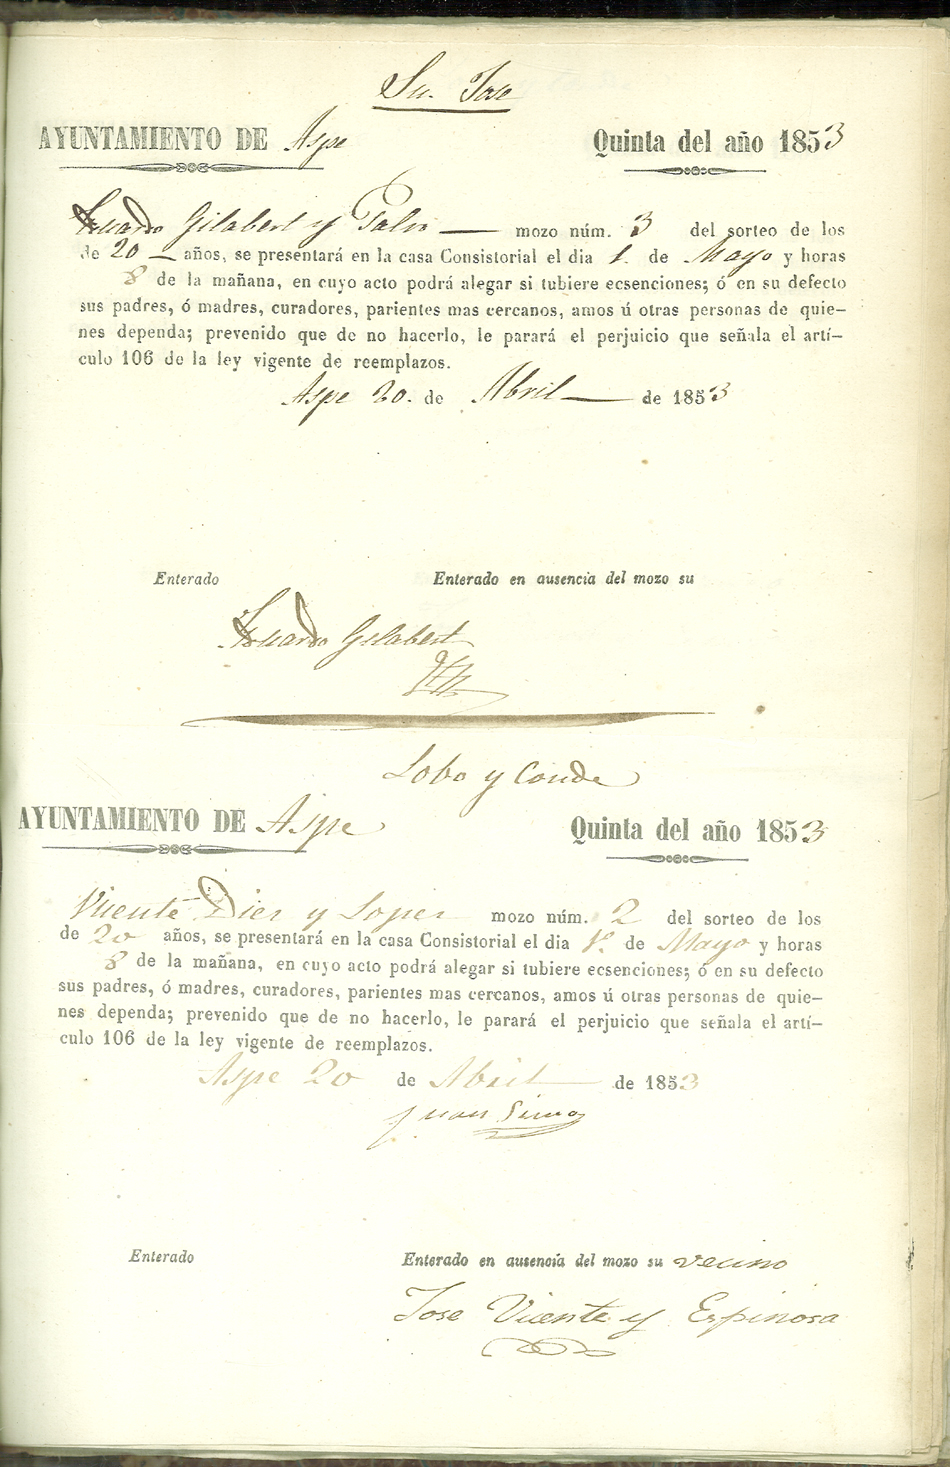 Sn. Jose
AYUNTAMIENTO DE Aspe Quinta del año 1853
Eduardo Gilabert y mozo núm. 3 del sorteo de los
de 20 años, se presentará en la casa Consistorial el dia 1. de Mayo y horas
8 de la mañana, en cuyo acto podrá alegar si tubiere ecsenciones; ó en su defecto
sus padres, ó madres, curadores, parientes mas cercanos, amos ú otras personas de quie-
nes dependa; prevenido que de no hacerlo, le parará el perjuicio que señala el artí-
culo 106 de la ley vigente de reemplazos.
Aspe 20. de Abril de 1853
Enterado Enterado en ausencia del mozo su
Eduardo Gilabert
Lobo y Conde
AYUNTAMIENTO DE Aspe Quinta del año 1853
Vicente Diez y Lopez mozo núm. 2 del sorteo de los
de 20 años, se presentará en la casa Consistorial el dia 1º. de Mayo y horas
8 de la mañana, en cuyo acto podrá alegar si tubiere ecsenciones; ó en su defecto
sus padres, ó madres, curadores, parientes mas cercanos, amos ú otras personas de quie-
nes dependa; prevenido que de no hacerlo, le parará el perjuicio que señala el artí-
culo 106 de la ley vigente de reemplazos.
Aspe 20 de Abril de 1853
Juan
Enterado Enterado en ausencia del mozo su vecino
Jose Vicente y Espinosa